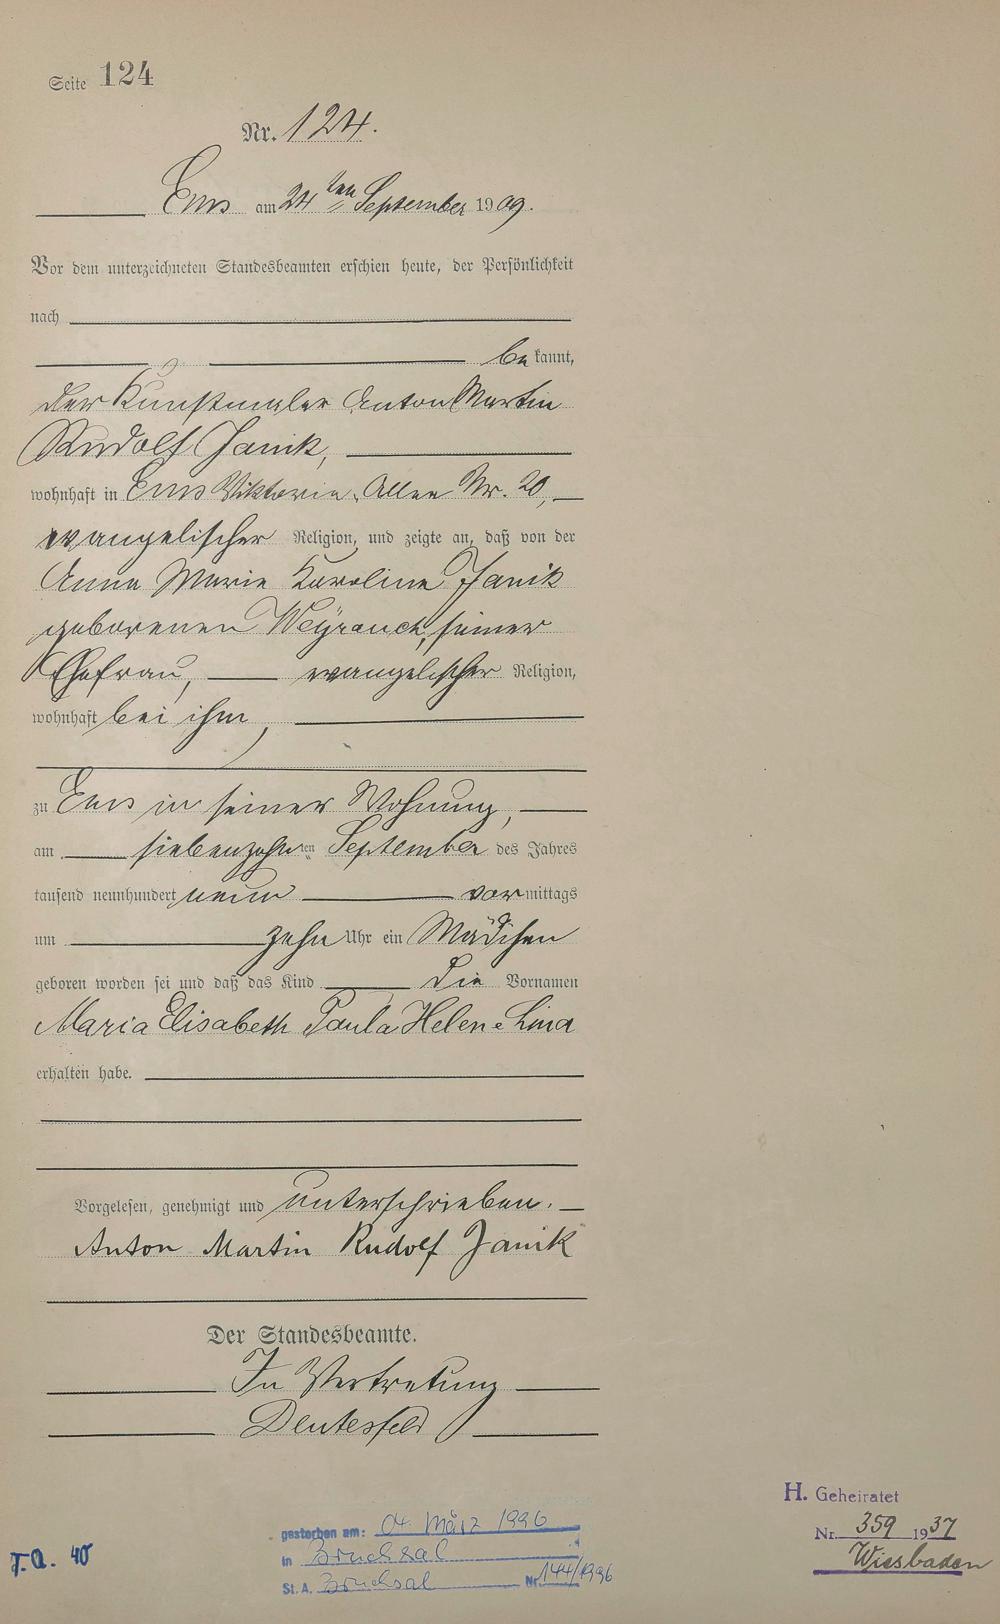 Seite 124
Nr. 124.
Ems am 24ten September 1909.
Vor dem unterzeichneten Standesbeamten erschien heute, der Persönlichkeit
nach
bekannt,
der Kunstmaler Anton Martin
Rudolf Janik,
wohnhaft in Ems Viktoria-Allee Nr. 20,
evangelischer Religion, und zeigte an, daß von der
Anna Marie Karoline Janik
geborenen Weyrauch, seiner
Ehefrau, evangelischer Religion,
wohnhaft bei ihm,
zu Ems in seiner Wohnung,
am siebenzehnten September des Jahres
tausend neunhundert neun vormittags
um zehn Uhr ein Mädchen
geboren worden sei und daß das Kind die Vornamen
Maria Elisabeth Paula Helene Lina
erhalten habe.
Vorgelesen, genehmigt und unterschrieben.
Anton Martin Rudolf Janik
Der Standesbeamte.
In Vertretung
gestorben am: 04. März 1996
in Bruchsal
St. A. Bruchsal Nr. 144/1996
H. Geheiratet
Nr. 359 1937
Wiesbaden